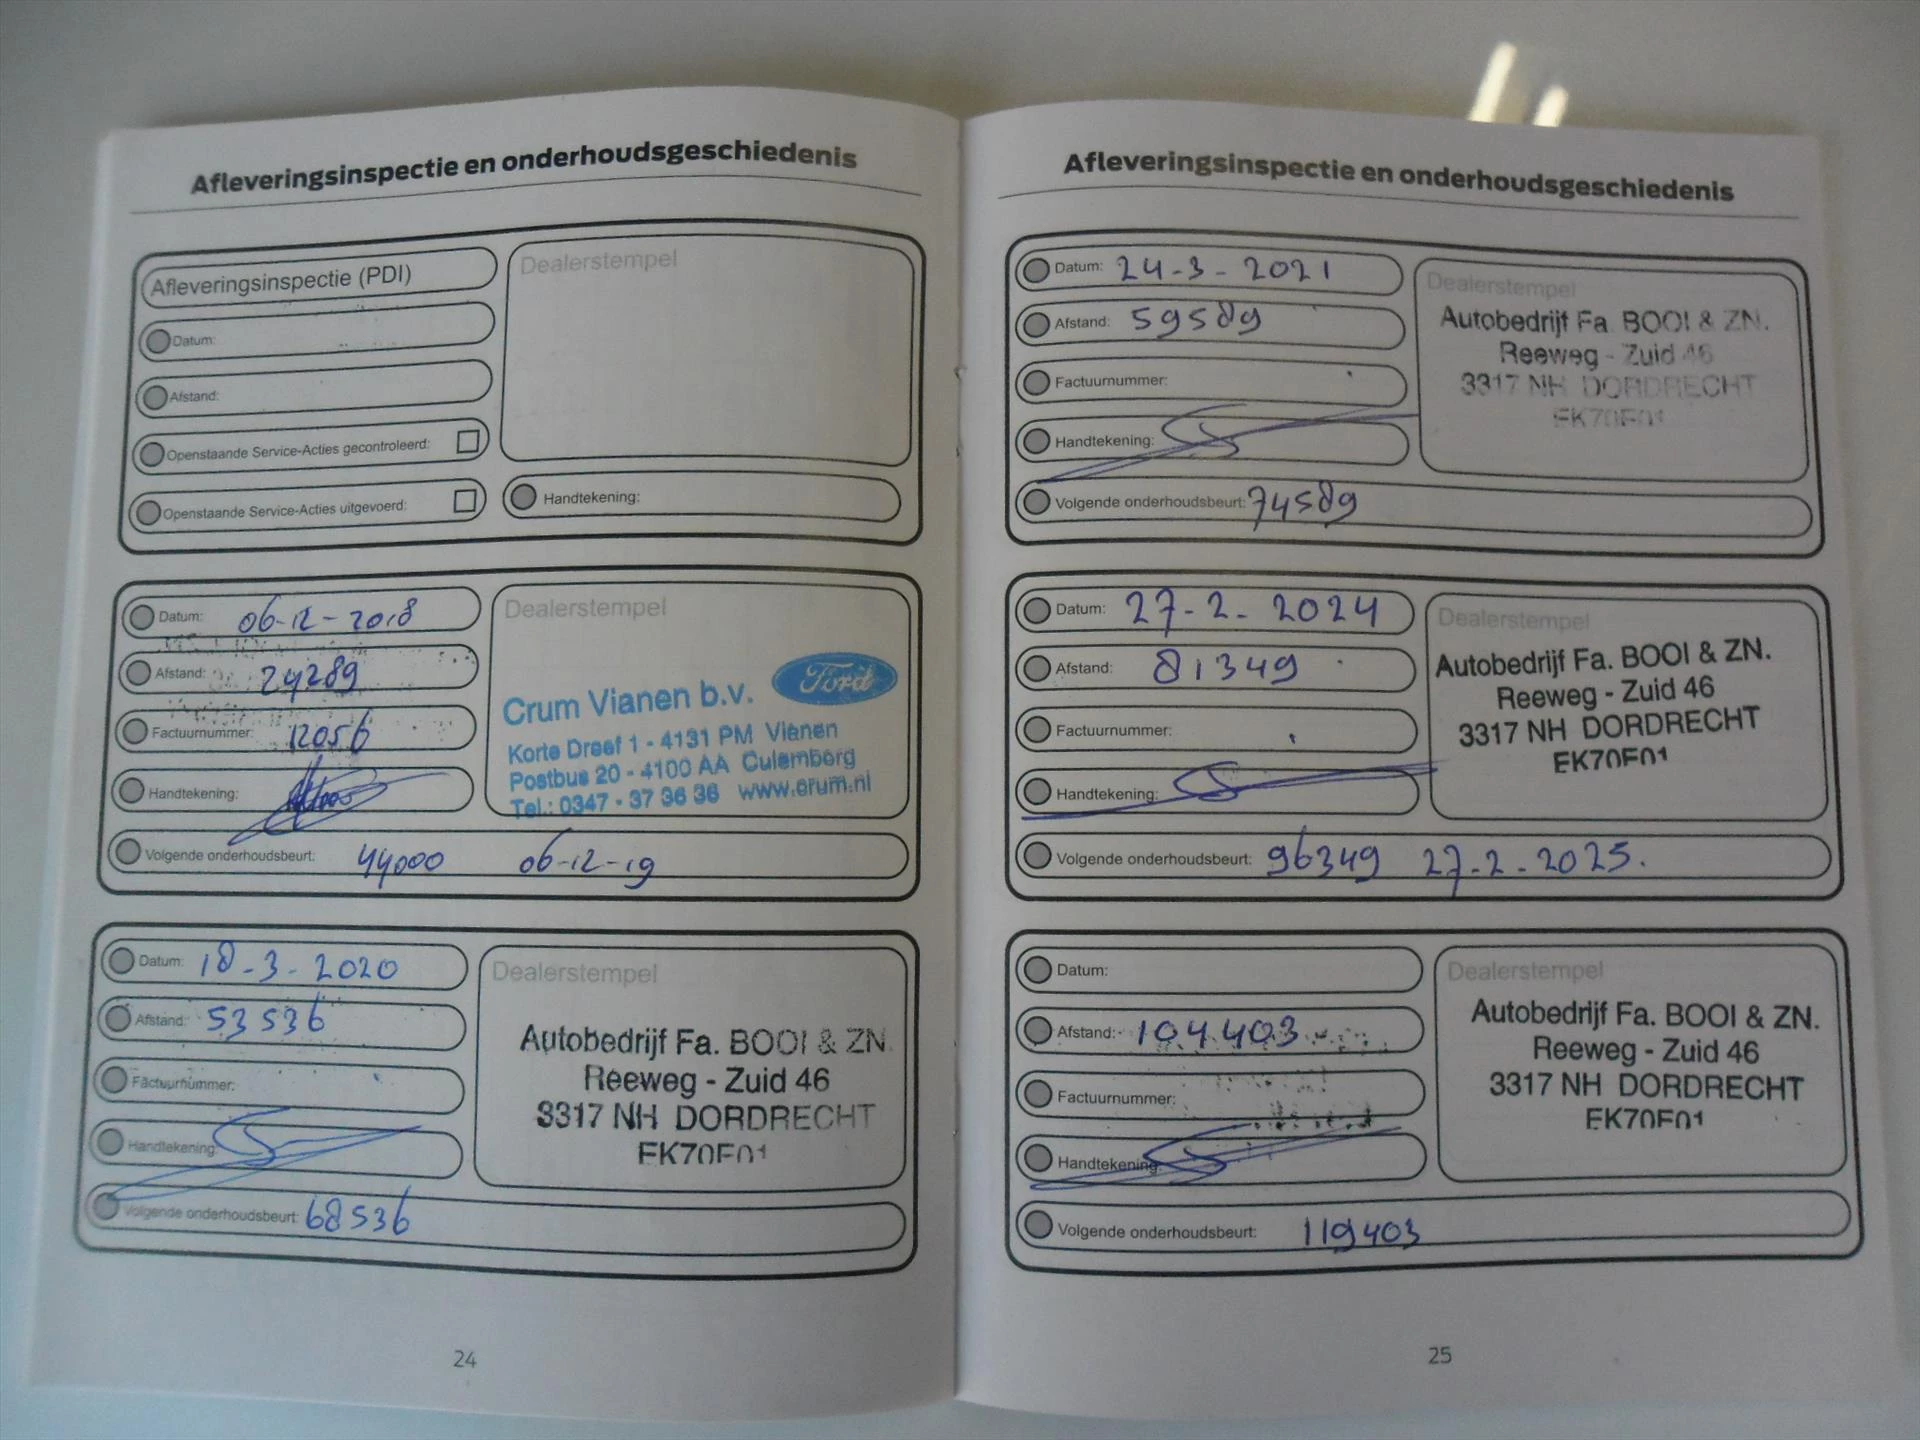 Afleveringsinspectie en onderhoudsgeschiedenis
Afleveringsinspectie (PDI)
Datum:
Afstand:
Openstaande Service-Acties gecontroleerd:
Openstaande Service-Acties uitgevoerd:
Dealerstempel
Handtekening:
Datum: 06-12-2018
Afstand: 24289
Factuurnummer: 12056
Handtekening:
Volgende onderhoudsbeurt: 44000 06-12-19
Dealerstempel
Ford
Crum Vianen b.v.
Korte Dreef 1 - 4131 PM Vianen
Postbus 20 - 4100 AA Culemborg
Tel.: 0347 - 37 36 36 www.crum.nl
Datum: 18-3-2020
Afstand: 53536
Factuurnummer:
Handtekening:
Volgende onderhoudsbeurt: 68536
Dealerstempel
Autobedrijf Fa. BOOI & ZN.
Reeweg - Zuid 46
3317 NH DORDRECHT
24
Afleveringsinspectie en onderhoudsgeschiedenis
Datum: 24-3-2021
Afstand: 59589
Factuurnummer:
Handtekening:
Volgende onderhoudsbeurt: 74589
Dealerstempel
Autobedrijf Fa. BOOI & ZN.
Reeweg - Zuid 46
3317 NH DORDRECHT
Datum: 27-2-2024
Afstand: 81349
Factuurnummer:
Handtekening:
Volgende onderhoudsbeurt: 96349 27-2-2025.
Dealerstempel
Autobedrijf Fa. BOOI & ZN.
Reeweg - Zuid 46
3317 NH DORDRECHT
Datum:
Afstand: 104403
Factuurnummer:
Handtekening:
Volgende onderhoudsbeurt: 119403
Dealerstempel
Autobedrijf Fa. BOOI & ZN.
Reeweg - Zuid 46
3317 NH DORDRECHT
25